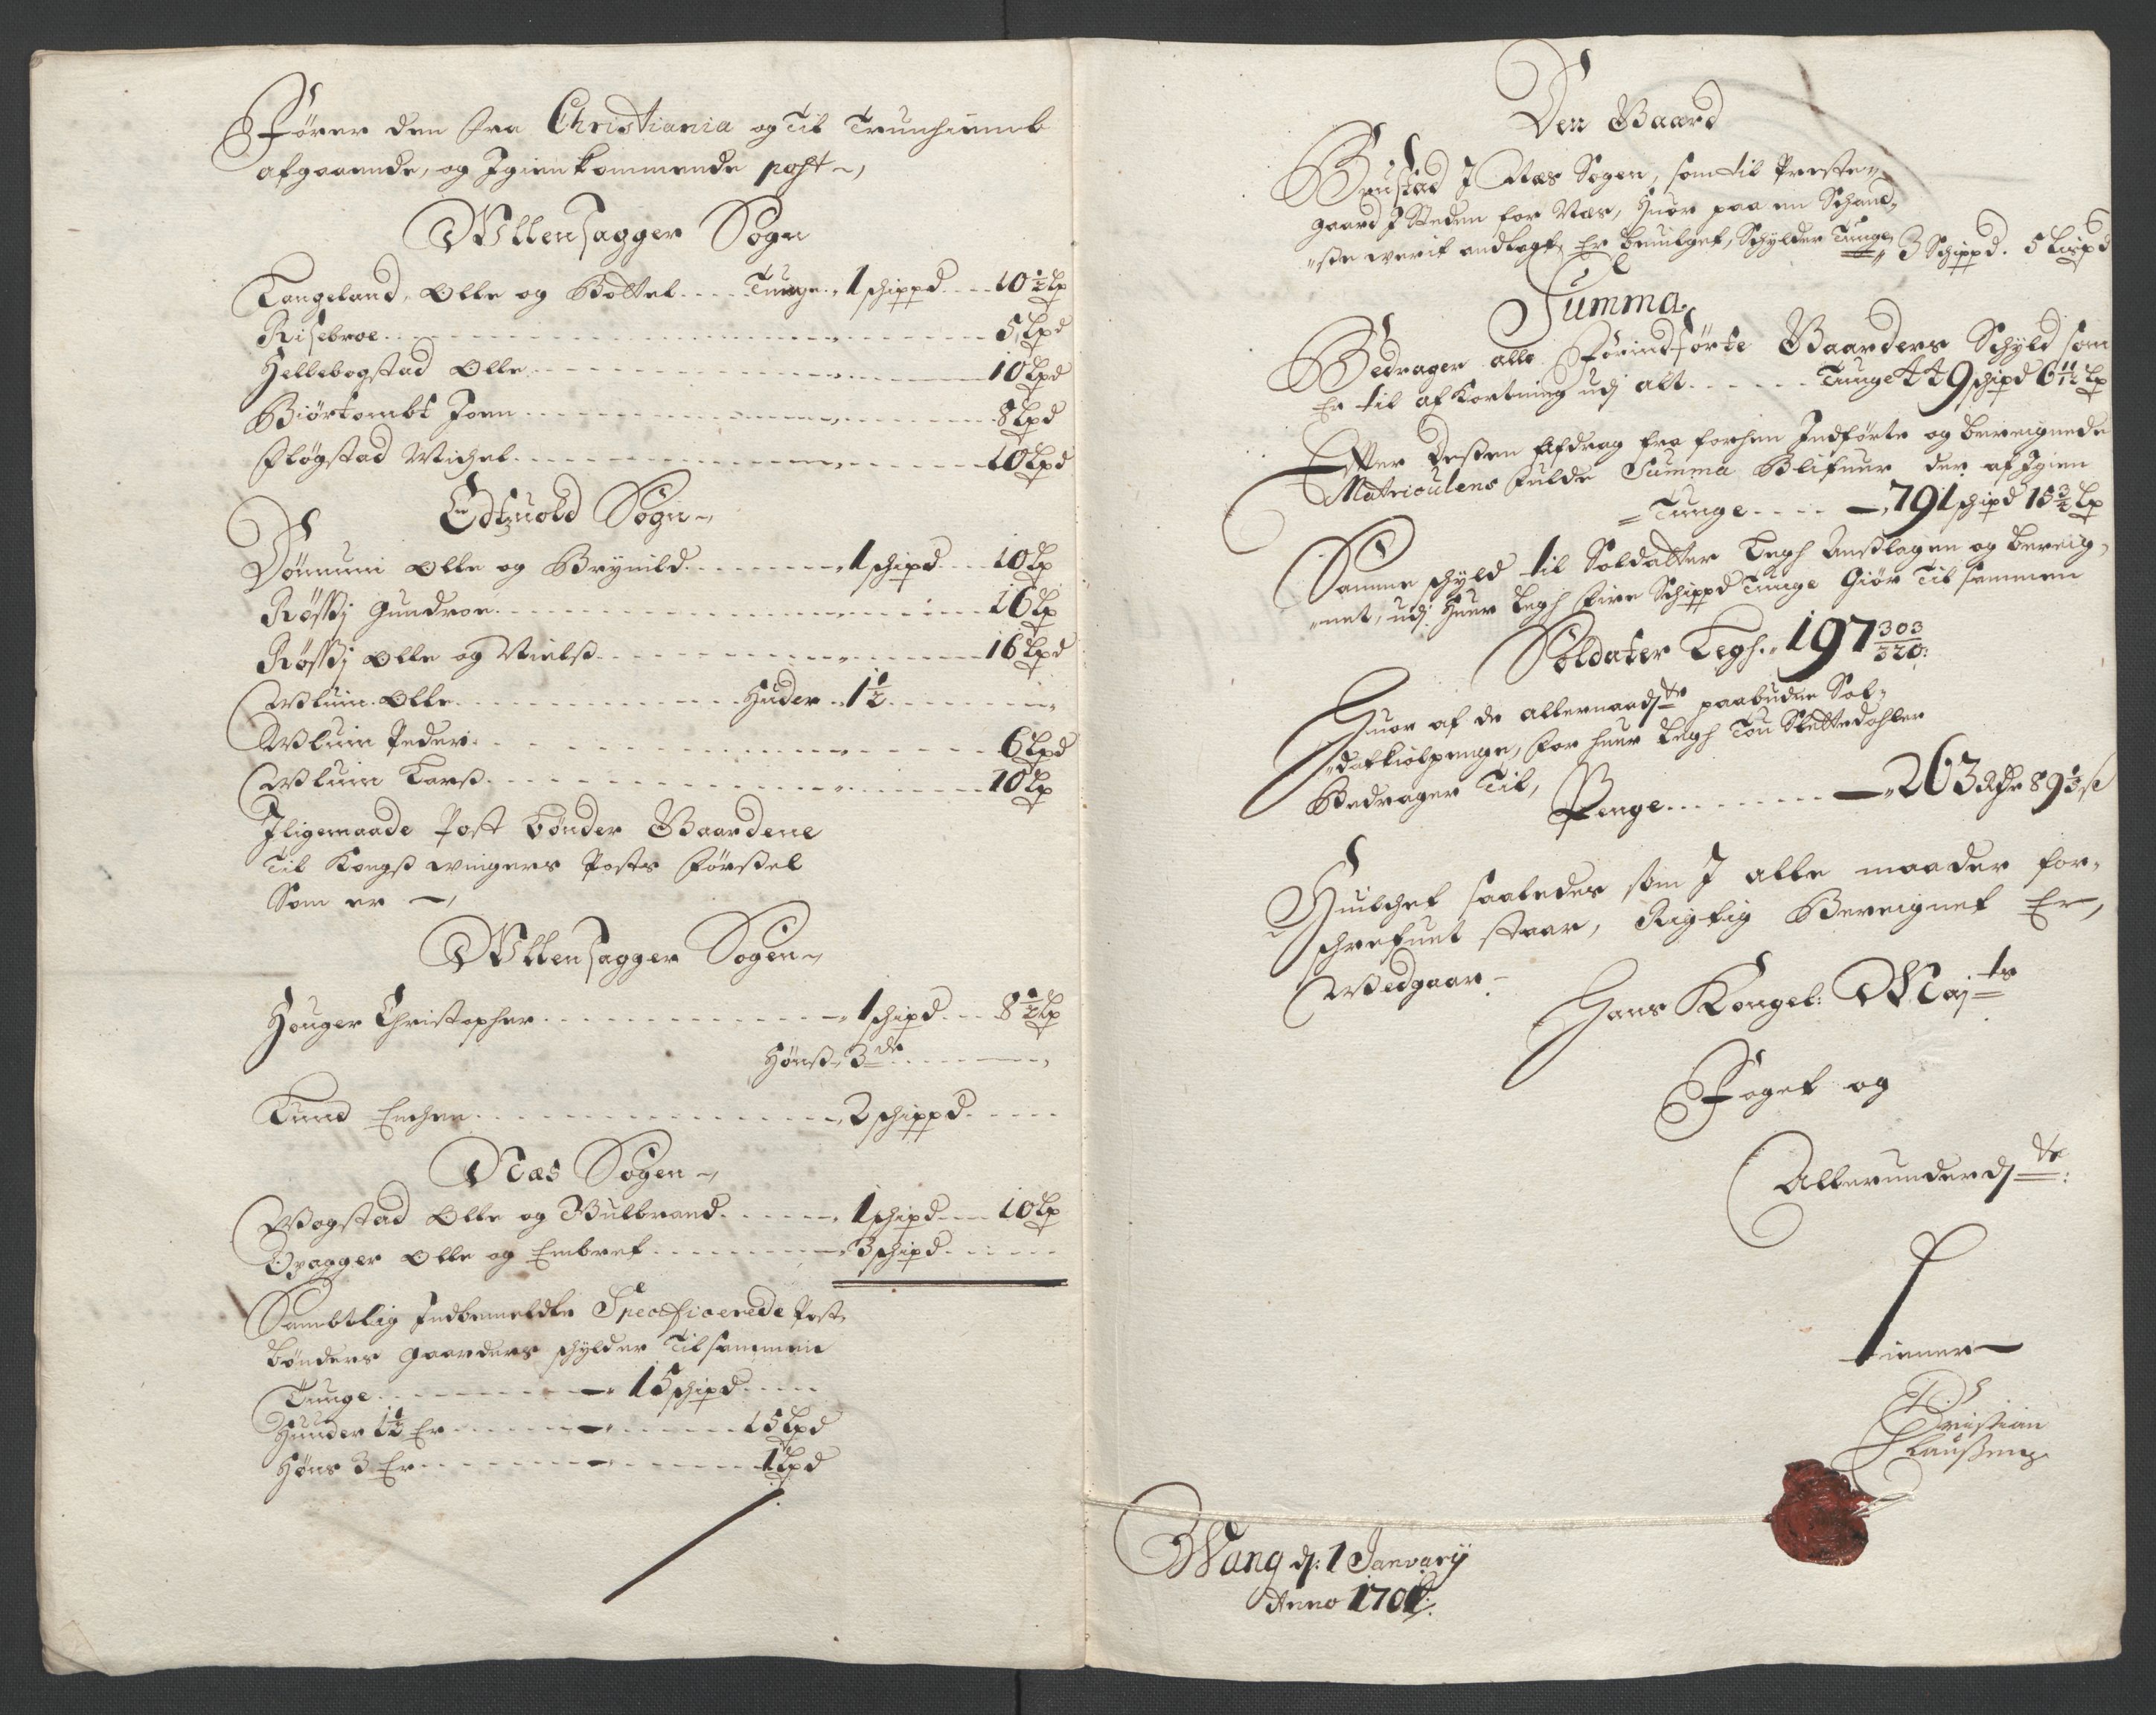 Fører den fra Christiania og Til Trunhiemb
afgaaende, og Igien kommende post
Ullensagger Sogn
Langeland, Olle og Boltel Tunge 1 schippd 10½ lp
Risebroe 5 Lpd
Hellebogstad Olle 10 Lpd
Biørtombt Joen 8 Lpd
Fløgstad Michel 10 Lpd
Edtzuold Sogn
Dønnum Olle og Brynild 1 schipd 10 Lp
Røssj Gundroe 16 Lp
Røssj Olle og Nielss 16 Lpd
Wluin Olle Huder 1½
Wluin Peder 6 Lpd
Wluin Larss 10 Lp
Iligemaade Post bønder Gaardene
Til Kongss wingers Posts Førssel
Som er
Ullensagger Sogen
Houger Christopher 1 schipd 8½ Lp
Hønss 3de
Lund Enchen 2 schippd
Næs Sogen
Wogstad Olle og Gulbrand 1 schipd 10 Lp
Opagger Olle og Embret 3 schipd
Sambtlig Indbemeldte Specificerede Post
bønders gaarders schylder Tilsammen
Tunge 15 schipd
Hunder 1½ Er 15 Lpd
Høns 3 Er 1 Lpd
Den Gaard
Brustad J Næs Sogen, som til Preste
gaard J Steden for Næs, Huor paa en Schand
ste werit andlagt, Er beuilget, Schylder Tunge 3 Schippd. 5 Lispd
Summa
Bedrager alle Førindførte Gaarders Schyld som
Er til afKortning udj alt Tunge 449 schipd 6 11/12 Lp
Effter Dessen Afdrag fra forhen Indførte og bereignede
Matriculens fulde Summa Blifuer der af Igien
Tunge 791 schipd 15¾ Lp
Samme schyld til Soldatter Legh Anslagen og bereig
net, udj Huer Legh Fire Schippd Tunge Giør Til sammen
Soldater Legh 197 303/320
Huor af de allernaadste paabudne Sol
datkiolpenge, for huer Legh Tou Slettedahler
Bedrager Til,
Penge 263 Rdr 89⅓ s
Huilchet saaledes som J alle maader for
schrefuet staar, Rigtig Bereignet Er,
Wedgaar
Hans Kongel: Maj:ts
Foget og
Allerunderd:ste
tienner
Christian
Claussen
Wang d: 1 January
Anno 1701